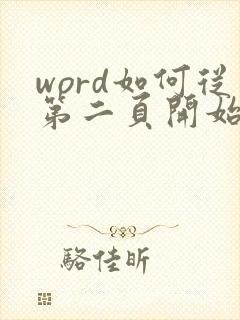 word如何從
第二頁開始
駱佳昕